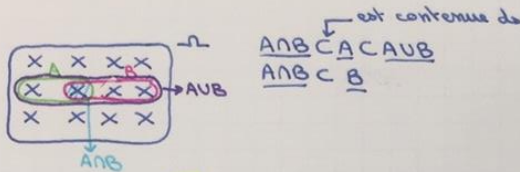 est contenue da
Ω
A∩B ⊂ A ⊂ A∪B
A∩B ⊂ B
A
B
A∪B
A∩B